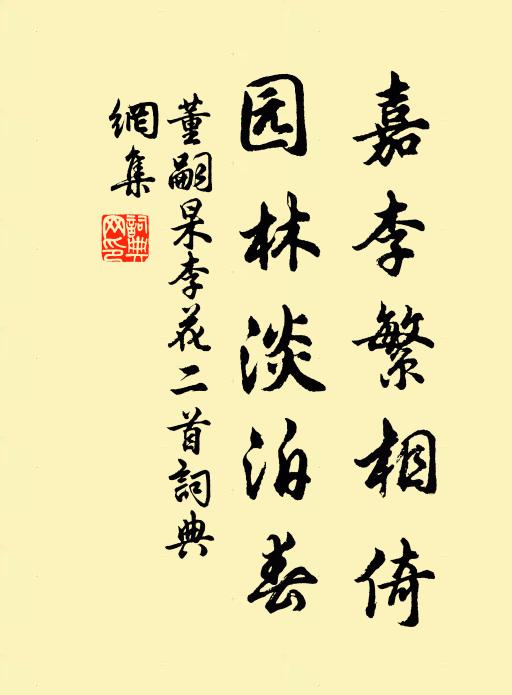 嘉李繁相倚
园林淡泊春
董嗣杲李花二首詞典
網集
詞典網印